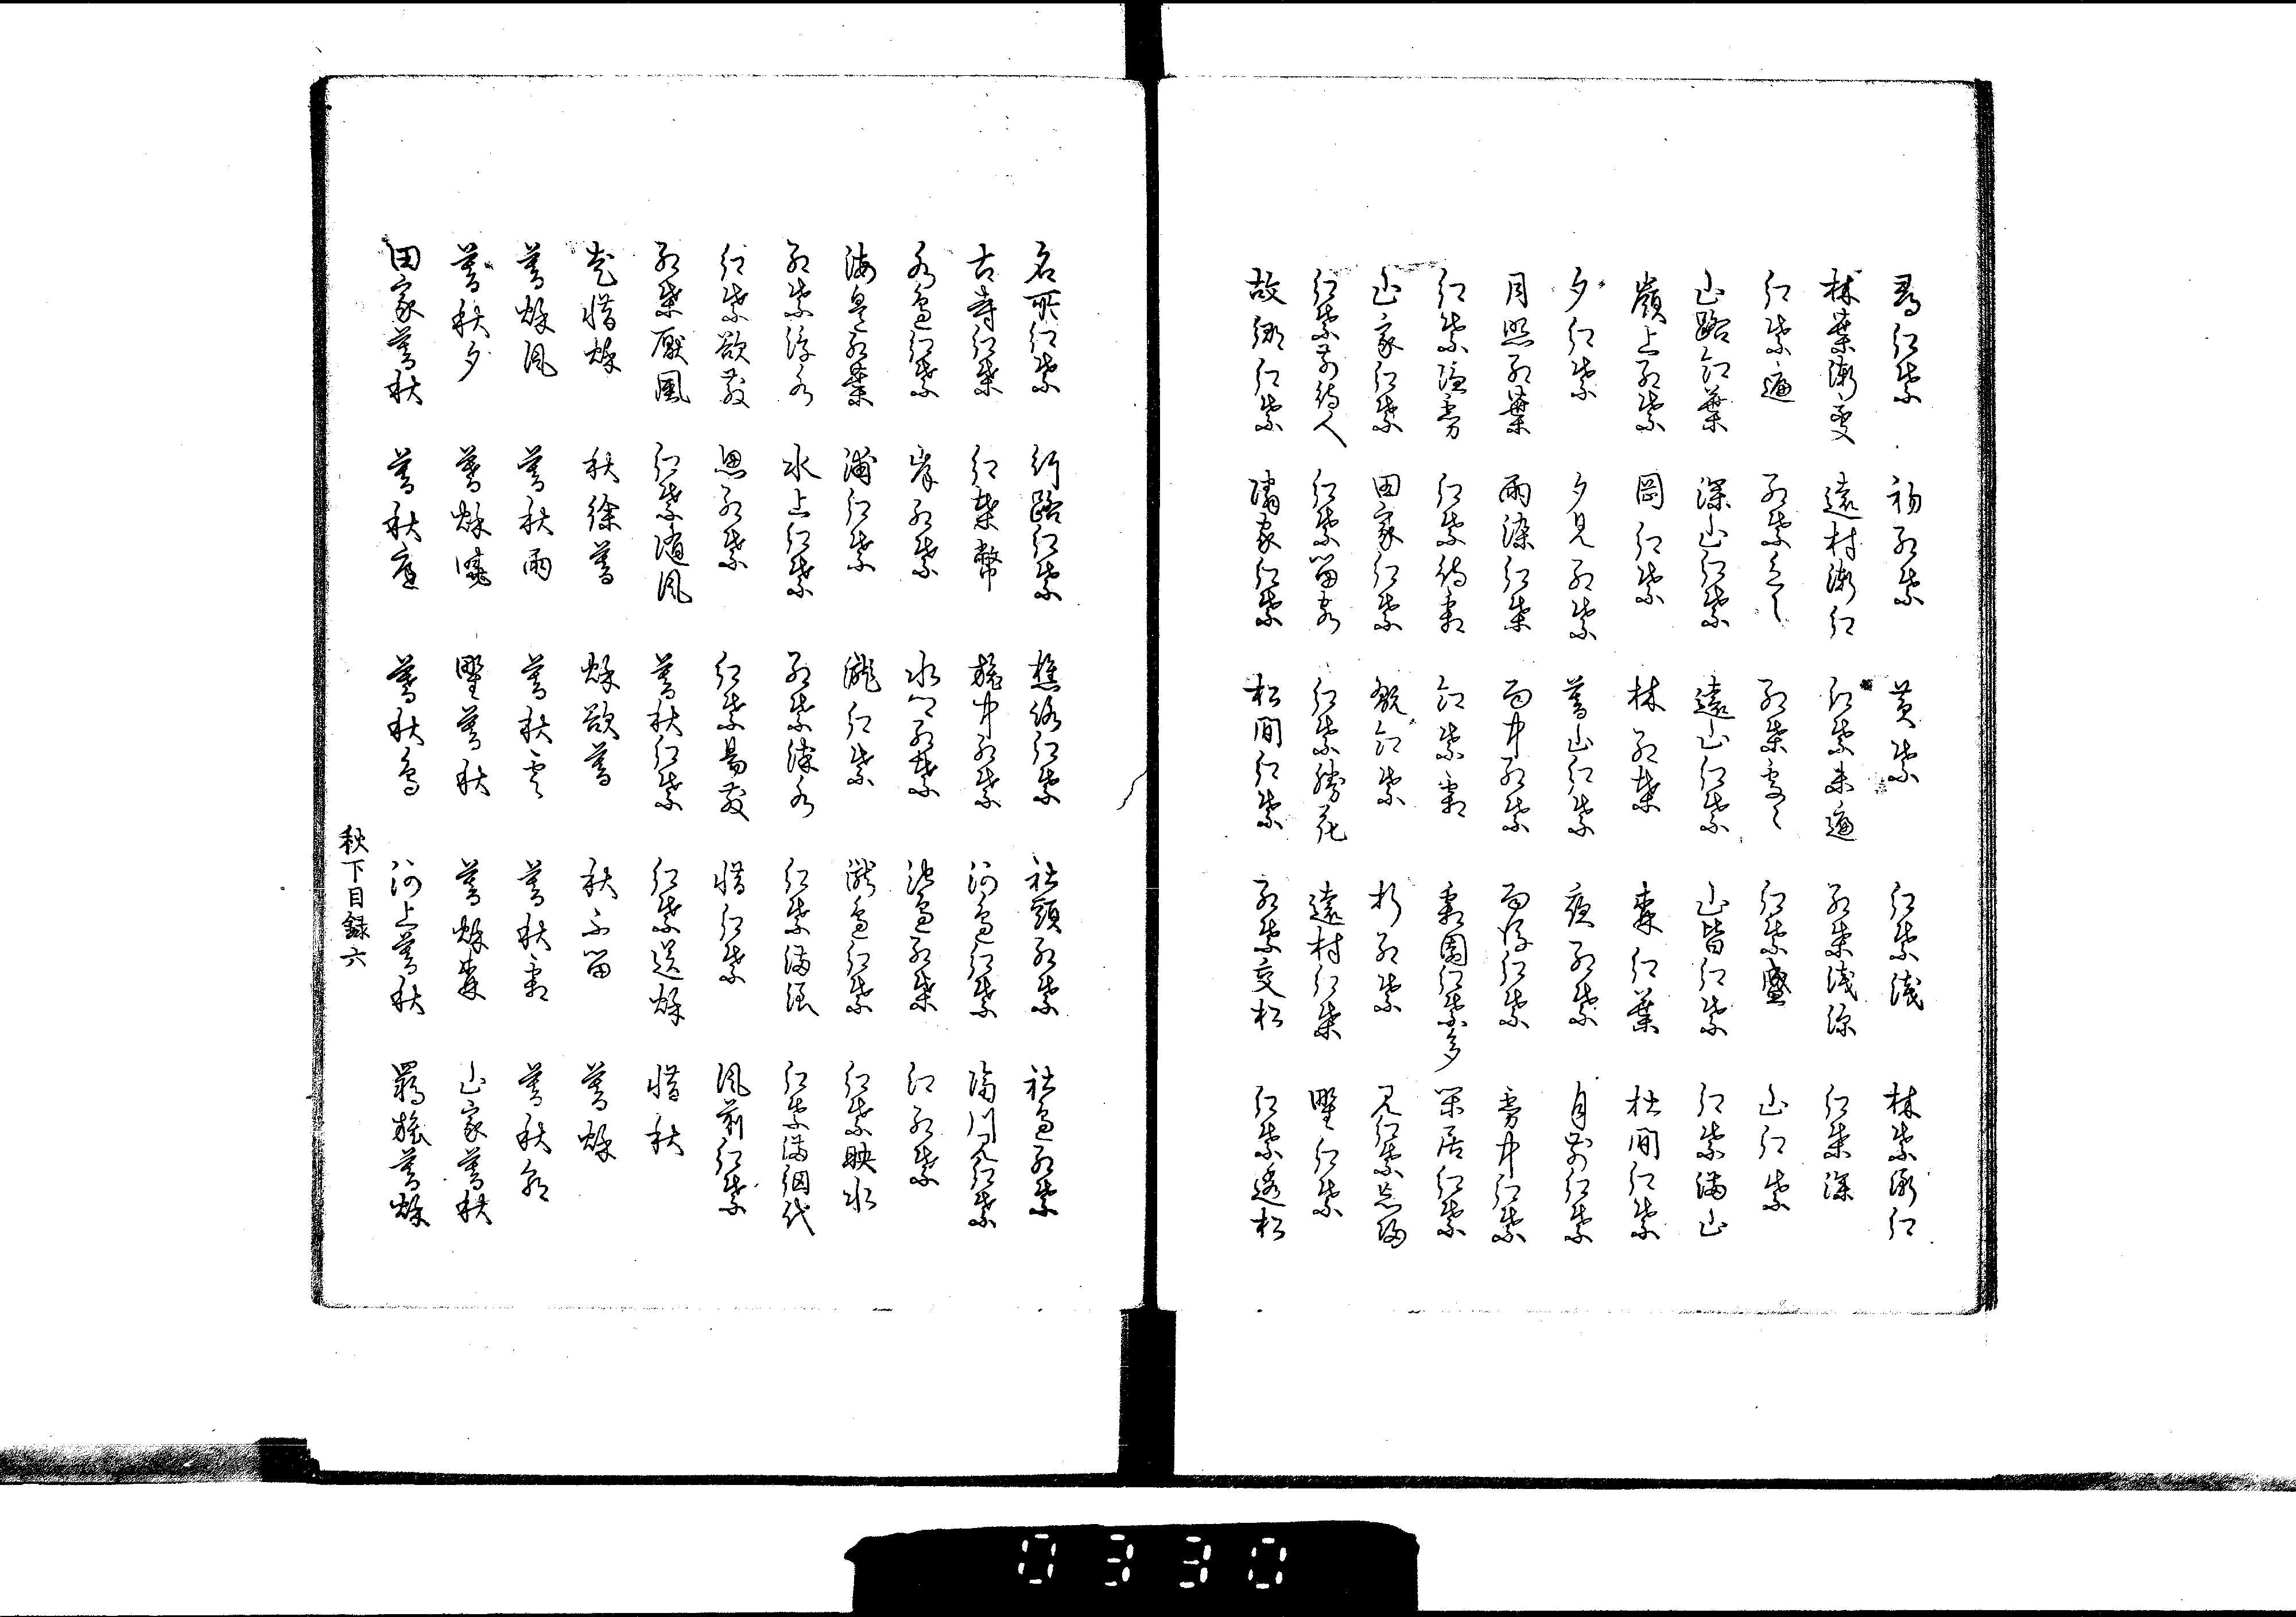 尋紅葉 初紅葉 黄葉 紅葉浅 林葉漸紅
林葉漸変 遠村漸紅 紅葉未遍 紅葉浅深 紅葉深
紅葉遍 紅葉 紅葉処々 紅葉盛 山紅葉
山路紅葉 深山紅葉 遠山紅葉 山皆紅葉 紅葉満山
嶺上紅葉 岡紅葉 林紅葉 森紅葉 杜間紅葉
夕紅葉 夕見紅葉 暮山紅葉 夜紅葉 月前紅葉
月照紅葉 雨染紅葉 雨中紅葉 雨後紅葉 霧中紅葉
紅葉隠霧 紅葉待霜 紅葉霜 霜園紅葉多 閑居紅葉
山家紅葉 田家紅葉 紅葉 杉紅葉 見紅葉忘帰
紅葉前待人 紅葉留客 紅葉勝花 遠村紅葉 野紅葉
故郷紅葉 隣家紅葉 松間紅葉 紅葉交松 紅葉透松
名所紅葉 行路紅葉 樵路紅葉 社頭紅葉 社辺紅葉
古寺紅葉 紅葉幣 旅中紅葉 河辺紅葉 隔川見紅葉
水辺紅葉 岸紅葉 水郷紅葉 池辺紅葉 江紅葉
海辺紅葉 浦紅葉 滝紅葉 滝辺紅葉 紅葉映水
紅葉浮水 水上紅葉 紅葉深水 紅葉満 紅葉満網代
紅葉欲散 思紅葉 紅葉易散 惜紅葉 風前紅葉
紅葉厭風 紅葉随風 暮秋紅葉 紅葉送秋 惜秋
老惜秋 秋徐暮 秋欲暮 秋不留 暮秋
暮秋風 暮秋雨 暮秋雲 暮秋霜
暮秋夕 暮秋暁 野暮秋 暮秋森 山家暮秋
田家暮秋 暮秋庭 暮秋鳥 河上暮秋 羇旅暮秋
秋下目録 六
0330